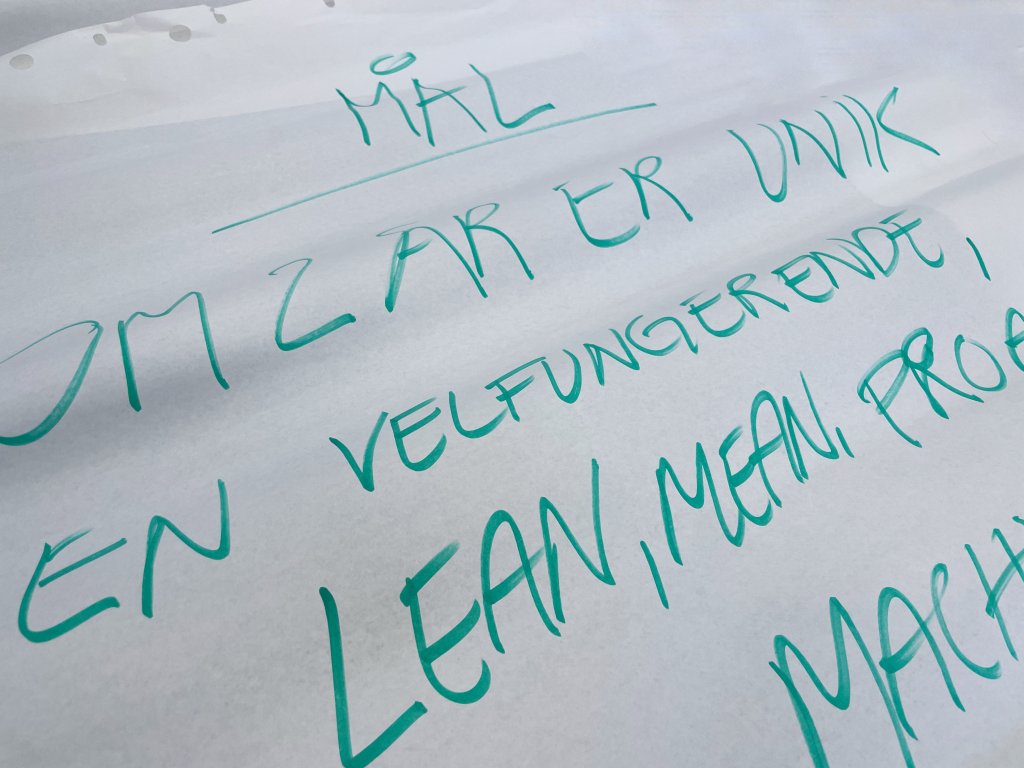 MÅL
OM 2 ÅR ER UNIK
EN VELFUNGERENDE,
LEAN, MEAN, PROA
MACH